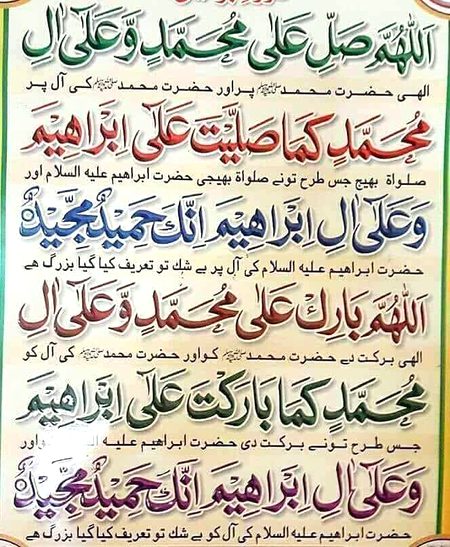 اَللّٰهُمَّ صَلِّ عَلٰى مُحَمَّدٍ وَّعَلٰى اٰلِ
الہی حضرت محمدﷺ پر اور حضرت محمدﷺ کی آل پر
مُحَمَّدٍ كَمَا صَلَّيْتَ عَلٰى اِبْرَاهِيْمَ
صلواۃ بھیج جس طرح تونے صلواۃ بھیجی حضرت ابراھیم علیہ السلام اور
وَعَلٰى اٰلِ اِبْرَاهِيْمَ اِنَّكَ حَمِيْدٌ مَّجِيْدٌ
حضرت ابراھیم علیہ السلام کی آل پر بے شک تو تعریف کیا گیا بزرگ ھے
اَللّٰهُمَّ بَارِكْ عَلٰى مُحَمَّدٍ وَّعَلٰى اٰلِ
الہی برکت دے حضرت محمدﷺ کو اور حضرت محمدﷺ کی آل کو
مُحَمَّدٍ كَمَا بَارَكْتَ عَلٰى اِبْرَاهِيْمَ
جس طرح تونے برکت دی حضرت ابراھیم علیہ اور
وَعَلٰى اٰلِ اِبْرَاهِيْمَ اِنَّكَ حَمِيْدٌ مَّجِيْدٌ
حضرت ابراھیم علیہ السلام کی آل کو بے شک تو تعریف کیا گیا بزرگ ھے